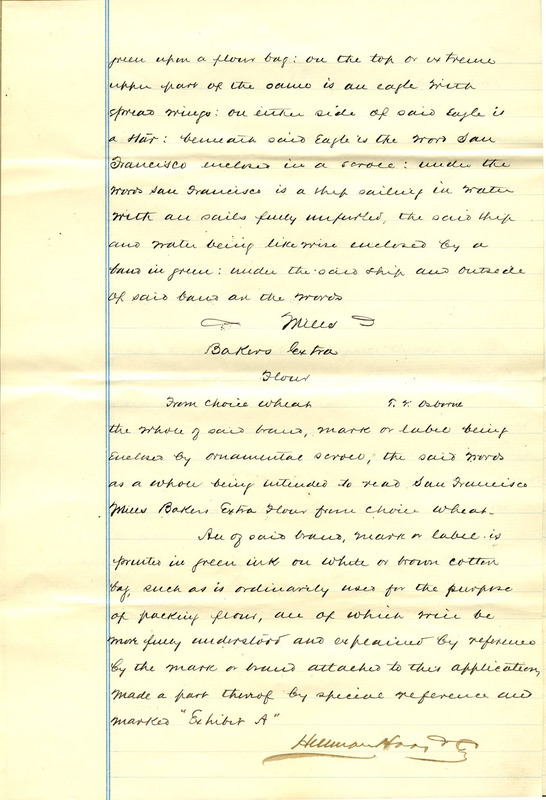 green upon a flour bag: on the top or extreme
upper part of the same is an eagle with
spread wings: on either side of said Eagle is
a star: beneath said Eagle is the word San
Francisco enclosed in a scroll: under the
words San Francisco is a ship sailing in water
with all sails fully unfurled, the said ship
and water being likewise enclosed by a
band in green: under the said ship and outside
of said band are the words
Mills
Bakers Extra
Flour
From choice wheat T. V. Osborne
the whole of said brand, mark or label being
enclosed by ornamental scroll, the said words
as a whole being intended to read San Francisco
Mills Bakers Extra Flour from choice wheat.
All of said brand, mark or label is
printed in green ink on white or brown cotton
bag, such as is ordinarily used for the purpose
of packing flour, all of which will be
more fully understood and explained by reference
to the mark or brand attached to this application,
made a part thereof by special reference and
marked "Exhibit A"
Hellman Haas & Co